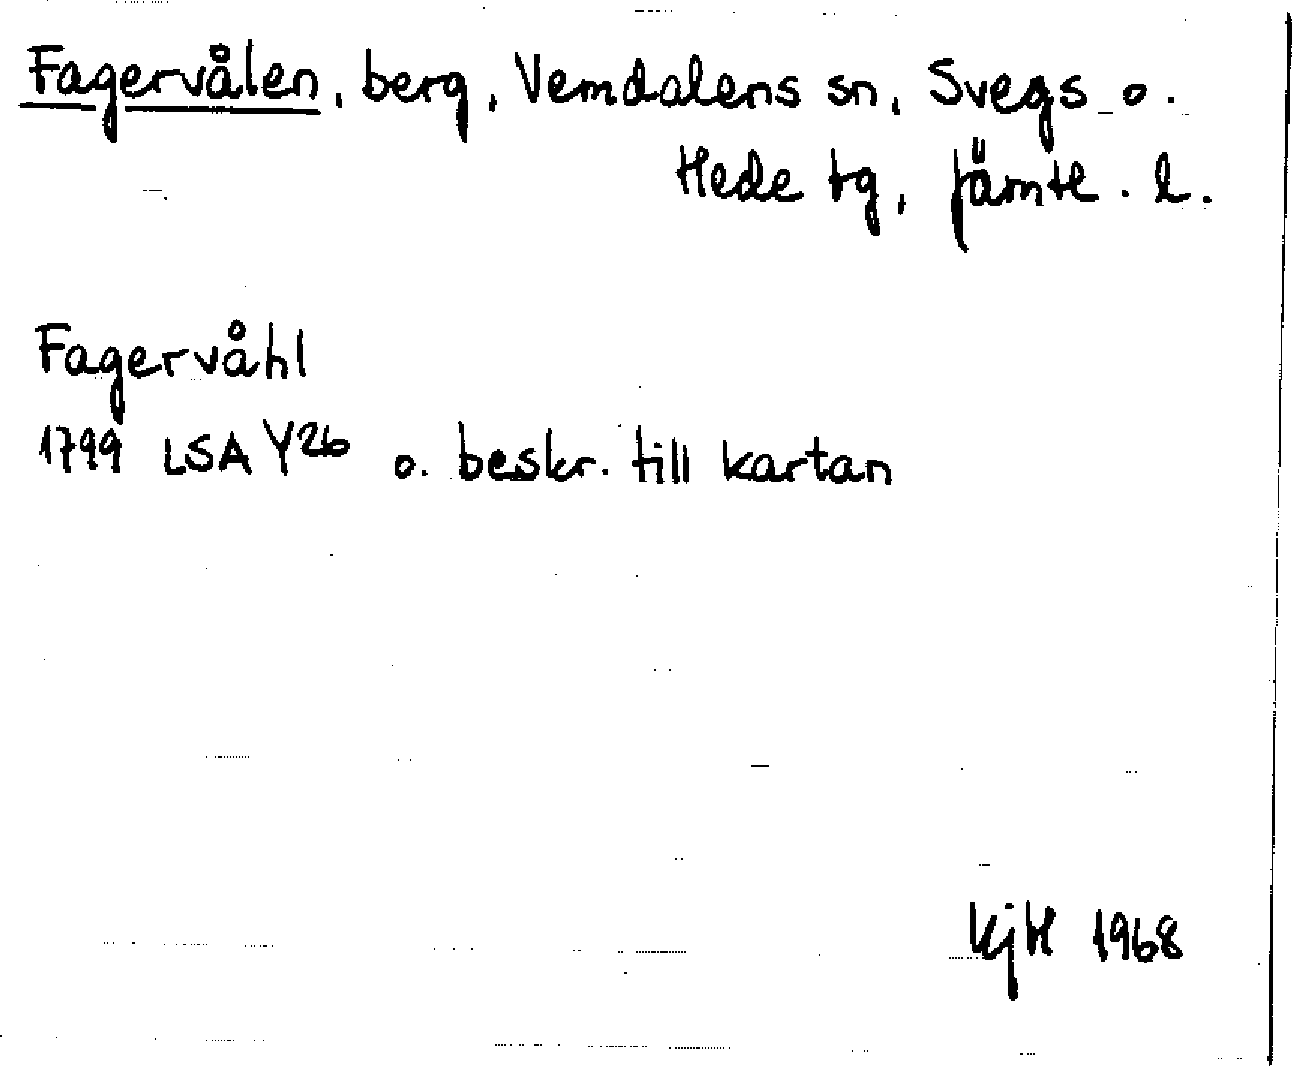 Fagervålen, berg, Vemdalens sn, Svegs o.
Hede tg, Jämtl. l.
Fagervåhl
1799 LSA Y26 o. beskr. till kartan
KjH 1968